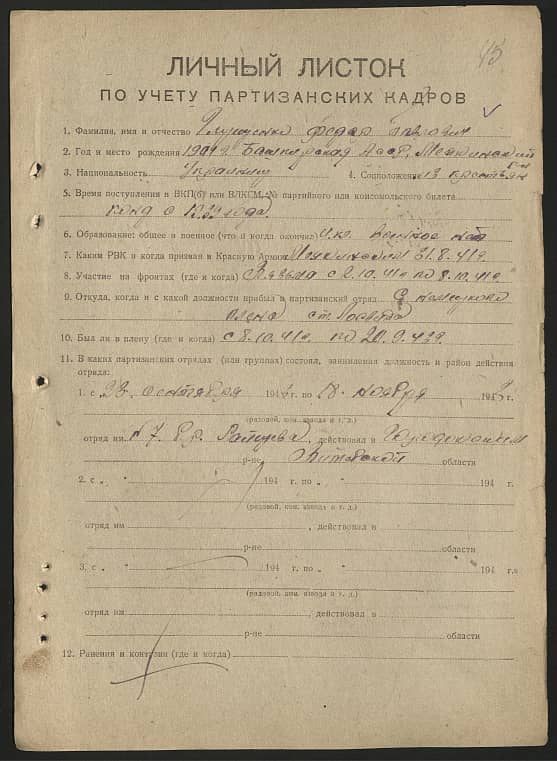 45
ЛИЧНЫЙ ЛИСТОК
ПО УЧЕТУ ПАРТИЗАНСКИХ КАДРОВ
1. Фамилия, имя и отчество Федор
2. Год и место рождения 1909 г Башкирская АССР,
3. Национальность Украинец 4. Соцположение из крестьян
5. Время поступления в ВКП(б) или ВЛКСМ, № партийного или комсомольского билета
канд с 1939 года
6. Образование: общее и военное (что и когда окончил)
7. Каким РВК и когда призван в Красную Армию 31.8.41 г.
8. Участие на фронтах (где и когда) Вязьма с 2.10.41 г по 8.10.41 г.
9. Откуда, когда и с какой должности прибыл в партизанский отряд С немецкого
плена ст.
10. Был ли в плену (где и когда) с 8.10.41 г. по 20.9.43 г.
11. В каких партизанских отрядах (или группах) состоял, занимаемая должность и район действия
отряда:
1. с 23 сентября 194 г. по 18 ноября 1943
(рядовой, ком. взвода и т. д.)
отряд им. № 7 действовал в
р-не Витебской области
2. с „ 194 г. по „ 194 г.
(рядовой, ком. взвода и т. д.)
отряд им , действовал в
р-не области
3. с „ 194 г. по „ 194 г.
(рядовой, ком. взвода и т. д.)
отряд им , действовал в
р-не области
12. Ранения и контузии (где и когда)